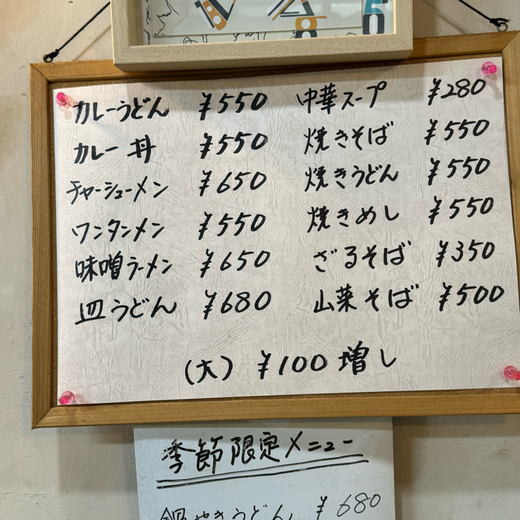 カレーうどん ¥550
カレー丼 ¥550
チャーシューメン ¥650
ワンタンメン ¥550
味噌ラーメン ¥650
皿うどん ¥680
中華スープ ¥280
焼きそば ¥550
焼きうどん ¥550
焼きめし ¥550
ざるそば ¥350
山菜そば ¥500
(大) ¥100増し
季節限定メニュー
鍋やきうどん ¥680